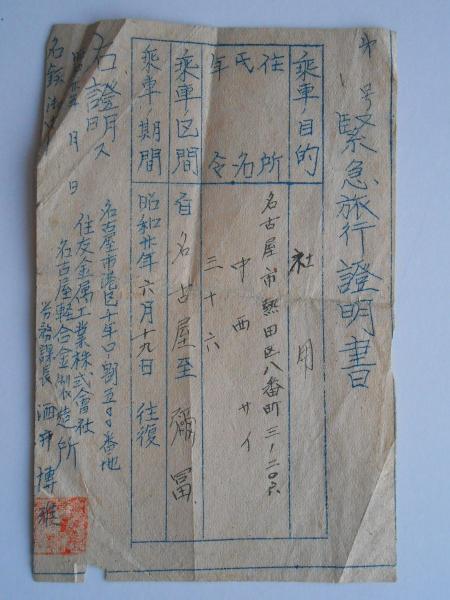 第 号
緊急旅行證明書
乗車目的 社用
住所 名古屋市熱田区八番町三ノ二〇六
氏名 中西サイ
年令 三十六
乗車区間 自名古屋至彌冨
乗車期間 昭和廿年六月十九日 往復
右證明ス
昭和廿年 月 日
名古屋市港区千年
住友金属工業株式會社
名古屋軽合金製造所
労務課長 酒井博雅